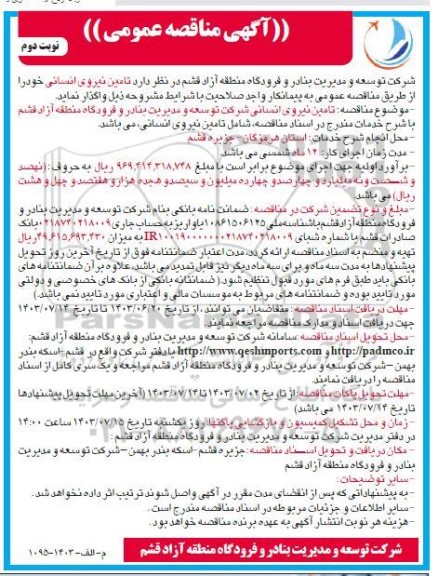 ((آگهی مناقصه عمومی))
نوبت دوم
شرکت توسعه و مدیریت بنادر و فرودگاه منطقه آزاد قشم در نظر دارد تامین نیروی انسانی خود را
از طریق مناقصه عمومی به پیمانکار واجد صلاحیت با شرایط مشروحه ذیل واگذار نماید.
-موضوع مناقصه: تامین نیروی انسانی شرکت توسعه و مدیریت بنادر و فرودگاه منطقه آزاد قشم
با شرح خدمات مندرج در اسناد مناقصه، شامل تامین نیروی انسانی، می باشد.
-محل انجام شرح خدمات: استان هرمزگان - جزیره قشم
-مدت زمان اجرای کار: ۱۲ ماه شمسی می باشد.
-برآورد اولیه جهت اجرای موضوع برابر است با مبلغ ۹۶۹,۴۱۴,۳۱۸,۷۴۸ ریال به حروف: (نهصد
و شصت و نه میلیارد و چهارصد و چهارده میلیون و سیصد و هجده هزار و هفتصد و چهل و هشت
ریال) می باشد.
-مبلغ و نوع تضمین شرکت در مناقصه: ضمانت نامه بانکی بنام شرکت توسعه و مدیریت بنادر و
فرودگاه منطقه آزاد قشم با شناسه ملی ۱۰۸۶۱۵۰۶۱۲۵ یا واریز به حساب جاری بانک
صادرات قشم با شماره شبای به میزان ریال
تهیه و منضم به اسناد مناقصه ارائه گردد. مدت اعتبار ضمانتنامه فوق از تاریخ آخرین روز تحویل
پیشنهادها به مدت سه ماه و برای سه ماه دیگر نیز قابل تمدید می باشد. علاوه بر آن ضمانتنامه های
بانکی باید طبق فرم های مورد قبول تنظیم شود. (ضمانتنامه بانکی از بانک های خصوصی و دولتی
مورد تایید بوده و ضمانتنامه های مربوط به موسسات مالی و اعتباری مورد تایید نمی باشد.)
-مهلت دریافت اسناد مناقصه: متقاضیان می توانند، از تاریخ ۱۴۰۳/۰۶/۲۰ تا تاریخ ۱۴۰۳/۰۷/۱۴
جهت دریافت اسناد و مدارک مناقصه مراجعه نمایند.
-محل تحویل اسناد مناقصه سامانه شرکت توسعه و مدیریت بنادر و فرودگاه منطقه آزاد قشم:
http://padmco.ir و http://www.qeshmports.com یا دفتر شرکت واقع در قشم - اسکله بندر
بهمن - شرکت توسعه و مدیریت بنادر و فرودگاه منطقه آزاد قشم مراجعه و یک سری کامل از اسناد
مناقصه را دریافت نمایند.
-مهلت تحویل پاکات مناقصه: از تاریخ ۱۴۰۳/۰۷/۰۲ تا ۱۴۰۳/۰۷/۱۴ (آخرین مهلت تحویل پیشنهادها
تاریخ ۱۴۰۳/۰۷/۱۴ می باشد)
-زمان و محل تشکیل کمیسیون و بازگشایی پاکتها: روز یکشنبه تاریخ ۱۴۰۳/۰۷/۱۵ ساعت ۱۴:۰۰
در دفتر مدیریت شرکت توسعه و مدیریت بنادر و فرودگاه منطقه آزاد قشم
-مکان دریافت و تحویل اسناد مناقصه: جزیره قشم - اسکله بندر بهمن - شرکت توسعه و مدیریت
بنادر و فرودگاه منطقه آزاد قشم
-سایر توضیحات:
-به پیشنهاداتی که پس از انقضای مدت مقرر در آگهی واصل شوند ترتیب اثر داده نخواهد شد.
-سایر اطلاعات و جزئیات مربوطه در اسناد مناقصه مندرج است.
-هزینه هر نوبت انتشار آگهی به عهده برنده مناقصه خواهد بود.
م-الف-۱۴۰۳-۱۰۹۵
شرکت توسعه و مدیریت بنادر و فرودگاه منطقه آزاد قشم